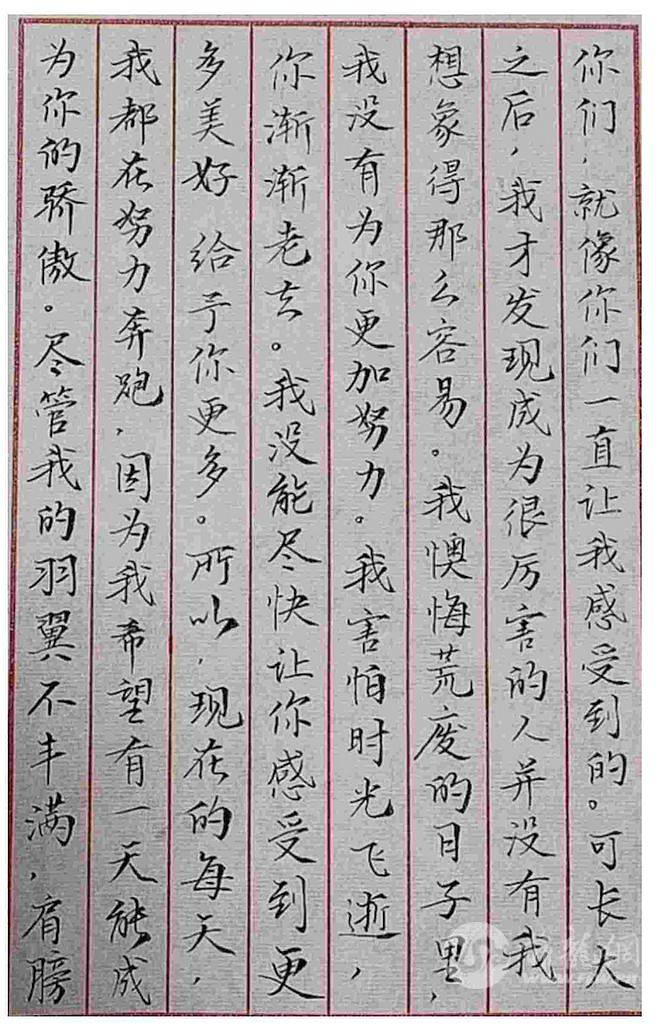 你们，就像你们一直让我感受到的。可长大
之后，我才发现成为很厉害的人并没有我
想象得那么容易。我懊悔荒废的日子里，
我没有为你更加努力。我害怕时光飞逝，
你渐渐老去。我没能尽快让你感受到更
多美好 给予你更多。所以，现在的每天，
我都在努力奔跑，因为我希望有一天能成
为你的骄傲。尽管我的羽翼不丰满，肩膀